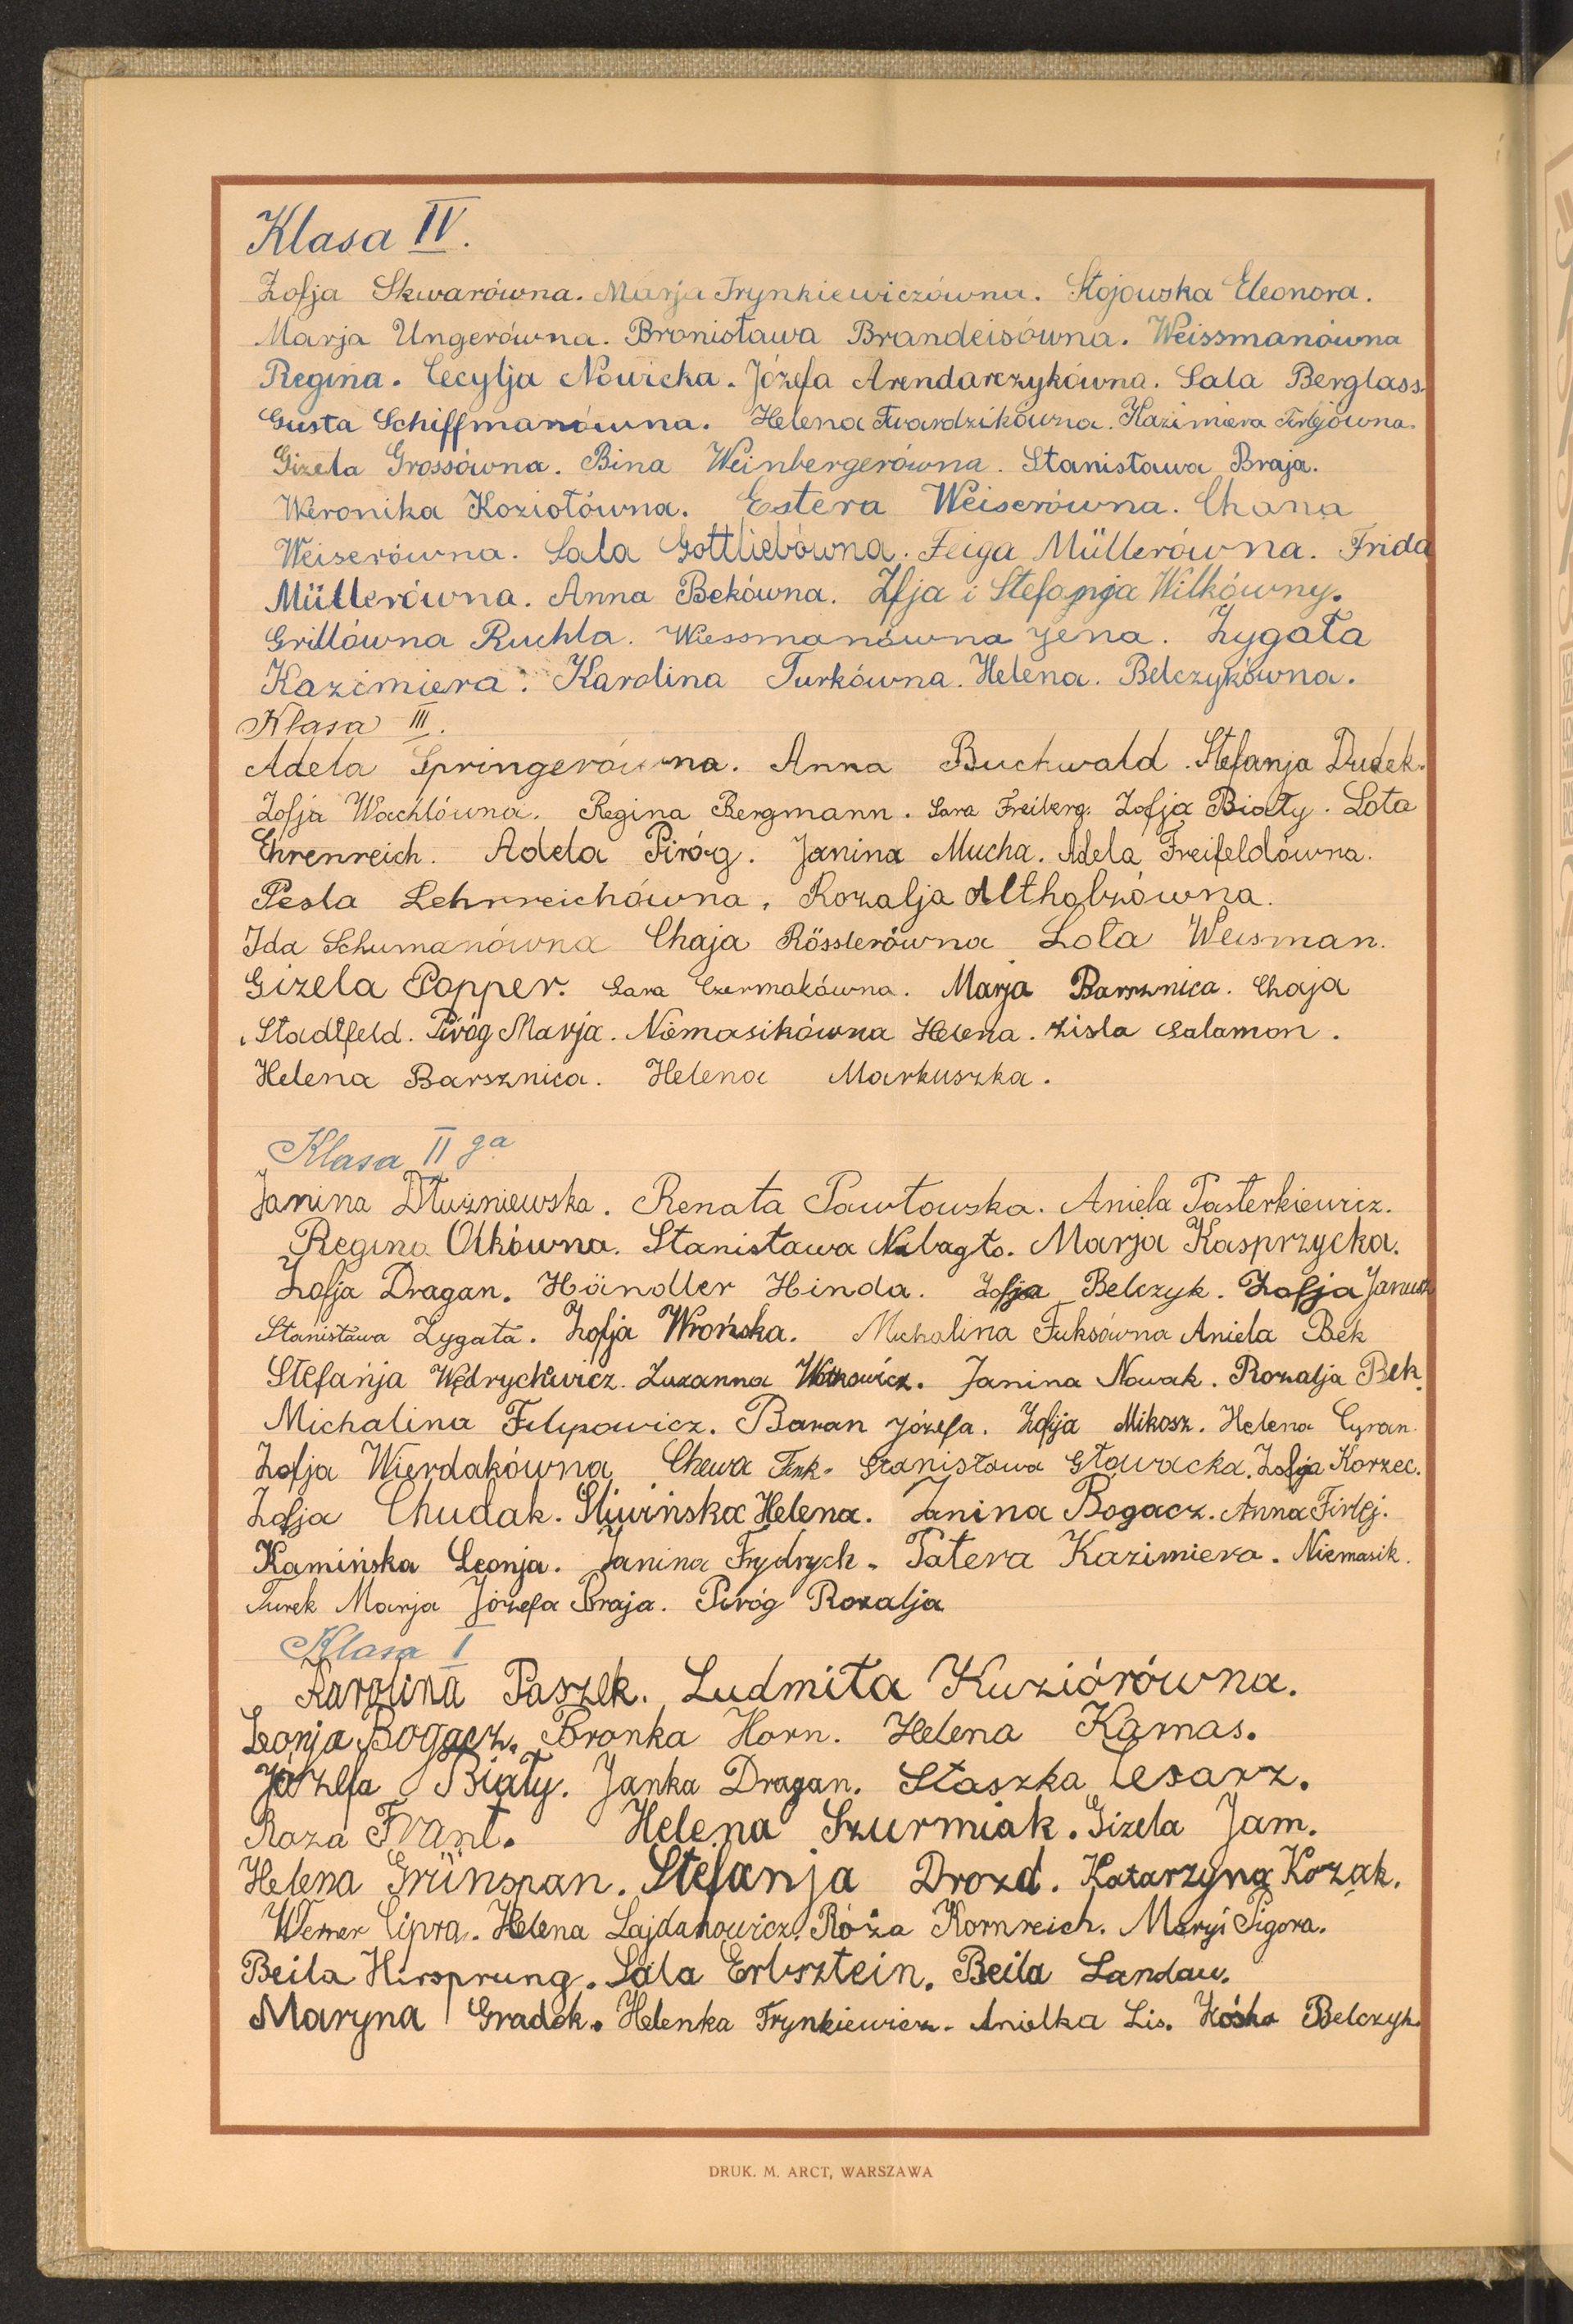 Klasa IV.
Zofja Skwarówna. Marja Trynkiewiczówna. Stojowska Eleonora.
Marja Ungerówna. Bronisława Brandeisówna. Weissmanówna
Regina. Cecylja Nowicka. Józefa Arendarczykówna. Sala Berglass.
Gusta Schiffmanówna. Helena Twardzikówna. Kazimiera Firlejówna.
Gizela Grossówna. Bina Weinbergerówna. Stanisława Braja.
Weronika Koziołówna. Estera Weiserówna. Chana
Weiserówna. Sala Gottliebówna. Feiga Müllerówna. Frida
Müllerówna. Anna Bekówna. Zfja i Stefanja Wilkówny.
Grillówna Ruchla. Wiessmanówna Jena. Zygała
Kazimiera. Karolina Turkówna. Helena. Belczykówna.
Klasa III.
Adela Springerówna. Anna Buchwald. Stefanja Dudek.
Zofja Wachlówna. Regina Bergmann. Sara Freiberg. Zofja Biały. Lota
Ehrenreich. Adela Piróg. Janina Mucha. Adela Freifeldówna.
Pesla Lehrreichówna. Rozalja Altholzówna.
Ida Schumanówna Chaja Rösslerówna Lola Weisman.
Gizela Popper. Sara Czermakówna. Marja Barsznica. Chaja
Stadtfeld. Piróg Marja. Niemasikówna Helena. Zisla Salamon.
Helena Barsznica. Helena Markuszka.
Klasa II ga
Janina Dłużniewska. Renata Pawłowska. Aniela Pasterkiewicz.
Regina Olkówna. Stanisława Nalagto. Marja Kasprzycka.
Zofja Dragan. Händler Hinda. Zofja Belczyk. Zofja Janusz
Stanisława Zygała. Zofja Wrońska. Michalina Fuksówna Aniela Bek
Stefanja Wędrychwicz. Zuzanna Wotkowicz. Janina Nowak. Rozalja Bek.
Michalina Filipowicz. Baran Józefa. Zofija Mikosz. Helena Cyran.
Zofja Wierdakówna Chewa Fink. Stanisława Słowacka. Zofja Korzec.
Zofja Chudak. Śliwińska Helena. Janina Bogacz. Anna Firlej.
Kamińska Leonja. Janina Frydrych. Patera Kazimiera. Niemasik.
Turek Marja Józefa Braja. Piróg Rozalja
Klasa I
Karolina Paszek. Ludmiła Kuziórówna.
Leonja Bogacz. Bronka Horn. Helena Kamas.
Józefa Biały. Janka Dragan. Staszka Cesarz.
Roza Frant. Helena Szurmiak. Gizela Jam.
Helena Grünspan. Stefanja Drozd. Katarzyna Kozak.
Werner Cipra. Helena Lajdanowicz. Róża Kornreich. Marysi Pigora.
Beila Hirsprung. Sala Erbsztein. Beila Landau.
Maryna Gradek. Helenka Trynkiewicz. Anielka Lis. Zośka Belczyk.
DRUK. M. ARCT, WARSZAWA